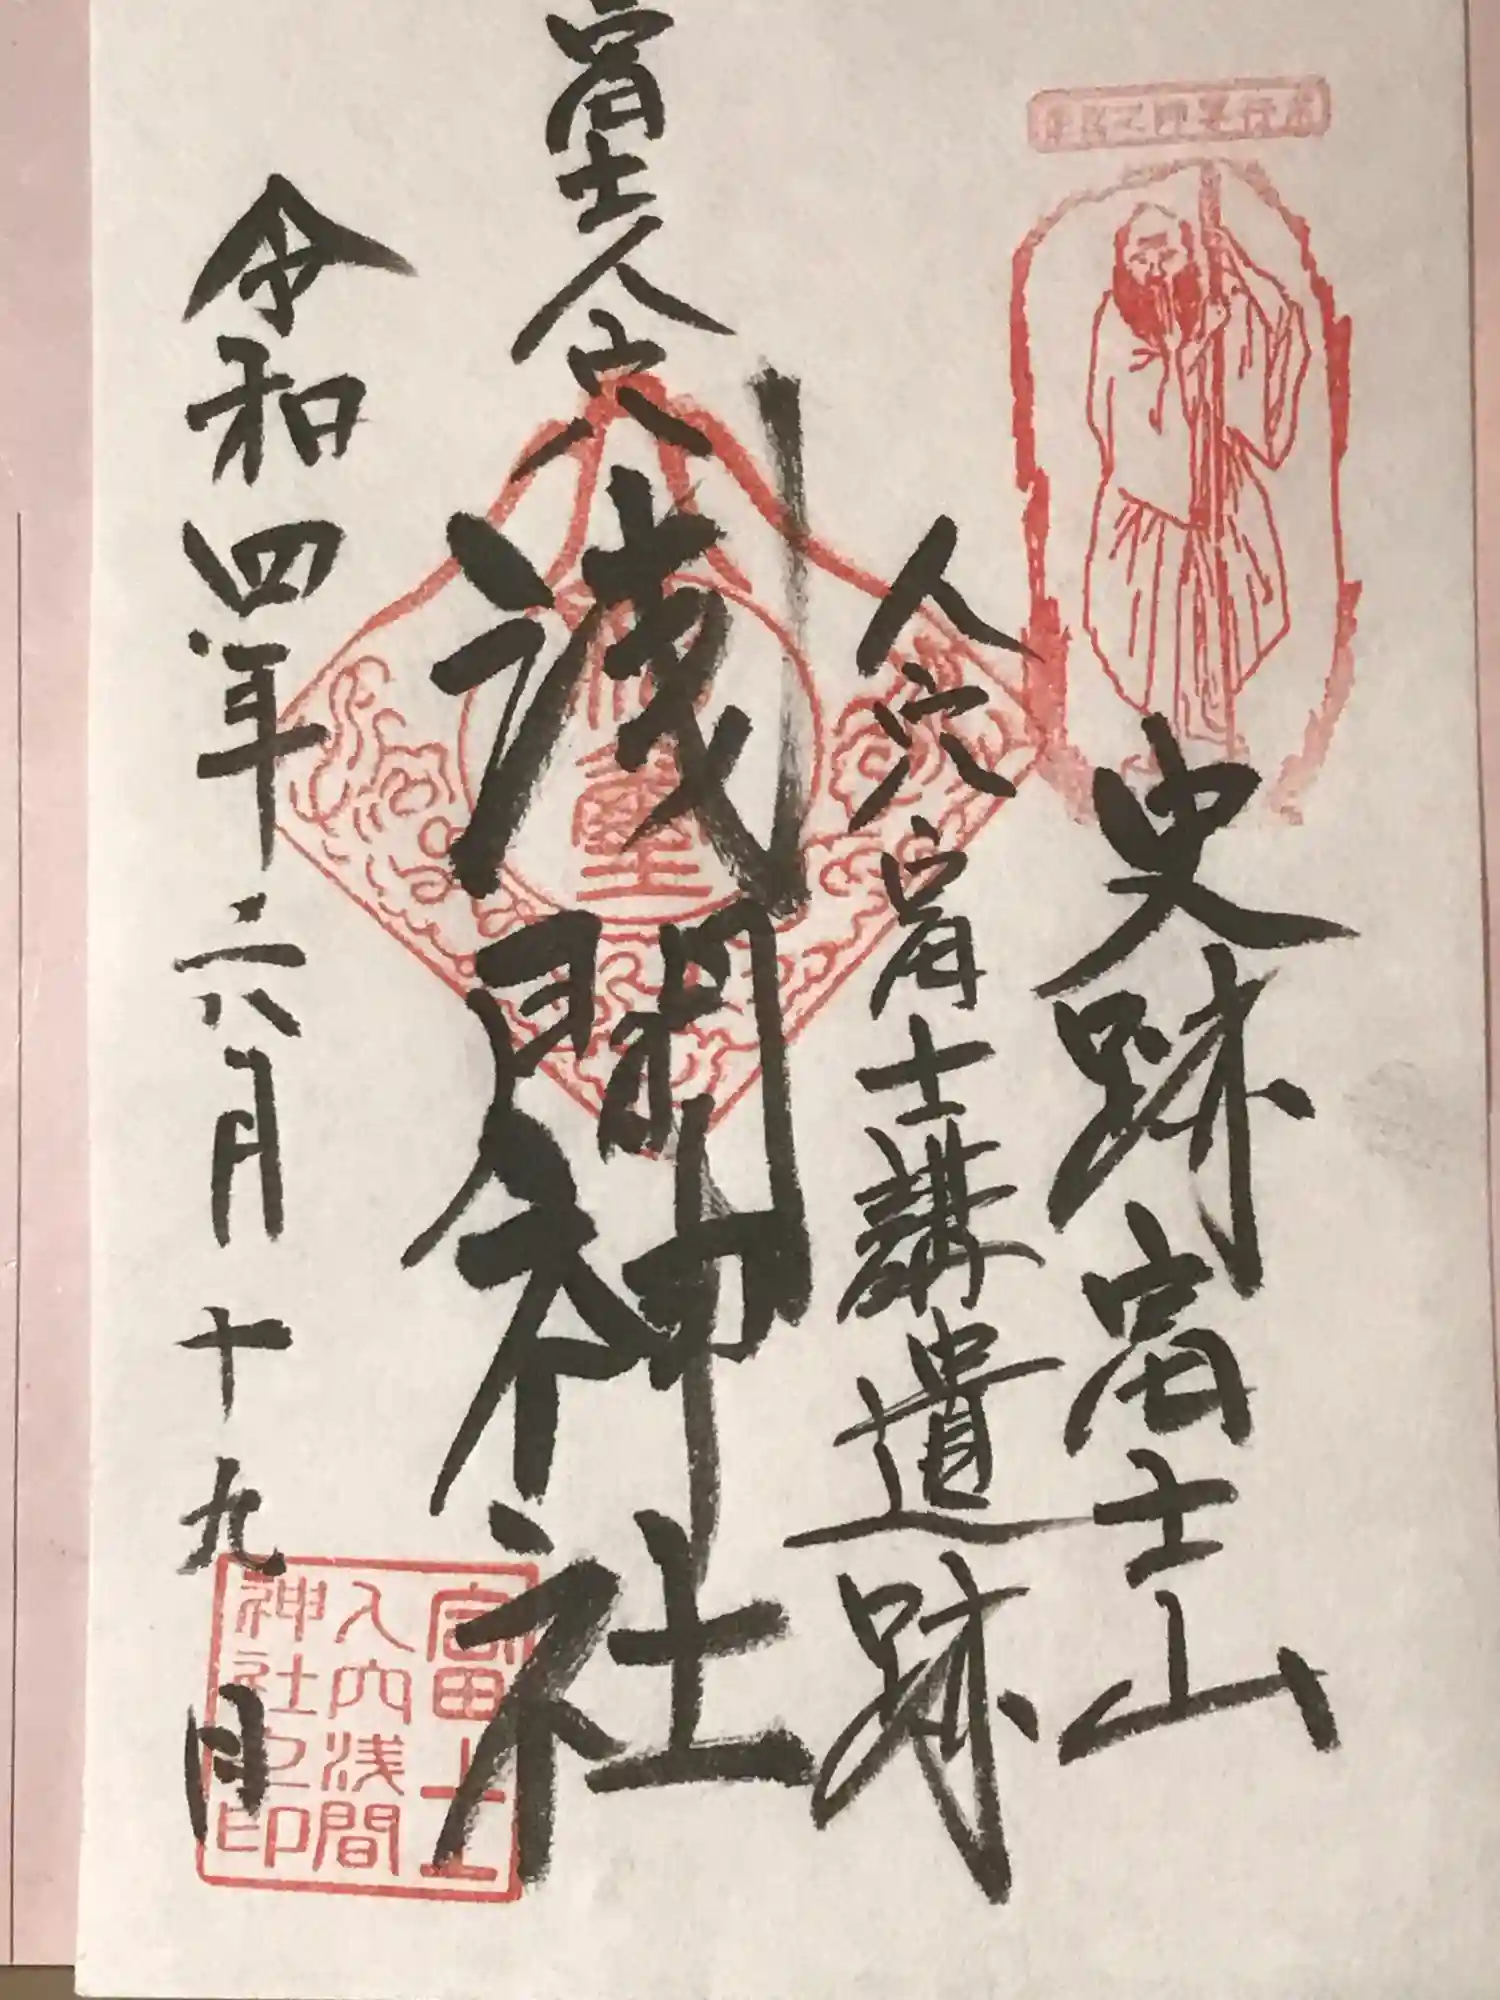 史跡富士山
人穴富士講遺跡
富士人穴
浅間神社
令和四年六月十九日
富士
人穴浅間
神社之印